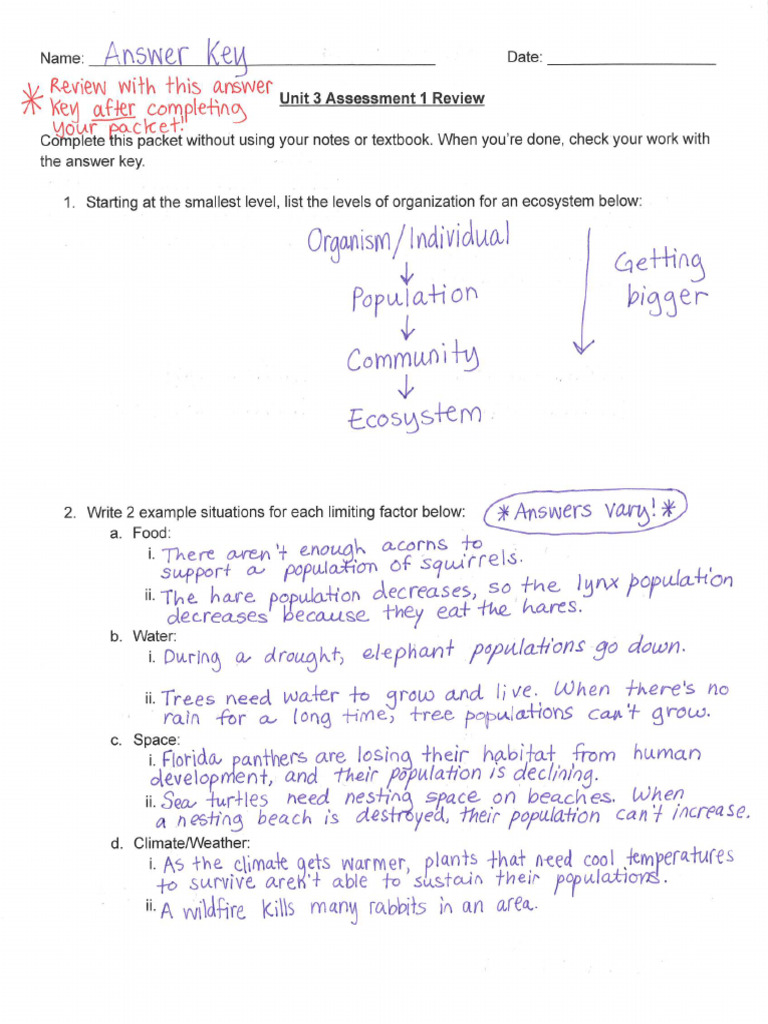 Name: Answer Key Date:
* Review with this answer
key after completing
your packet!
Unit 3 Assessment 1 Review
Complete this packet without using your notes or textbook. When you're done, check your work with
the answer key.
1. Starting at the smallest level, list the levels of organization for an ecosystem below:
Organism/Individual
↓
Population
↓
Community
↓
Ecosystem
Getting
bigger
2. Write 2 example situations for each limiting factor below: *Answers vary!*
a. Food:
i. There aren't enough acorns to
support a population of squirrels.
ii. The hare population decreases, so the lynx population
decreases because they eat the hares.
b. Water:
i. During a drought, elephant populations go down.
ii. Trees need water to grow and live. When there's no
rain for a long time, tree populations can't grow.
c. Space:
i. Florida panthers are losing their habitat from human
development, and their population is declining.
ii. Sea turtles need nesting space on beaches. When
a nesting beach is destroyed, their population can't increase.
d. Climate/Weather:
i. As the climate gets warmer, plants that need cool temperatures
to survive aren't able to sustain their populations.
ii. A wildfire kills many rabbits in an area.